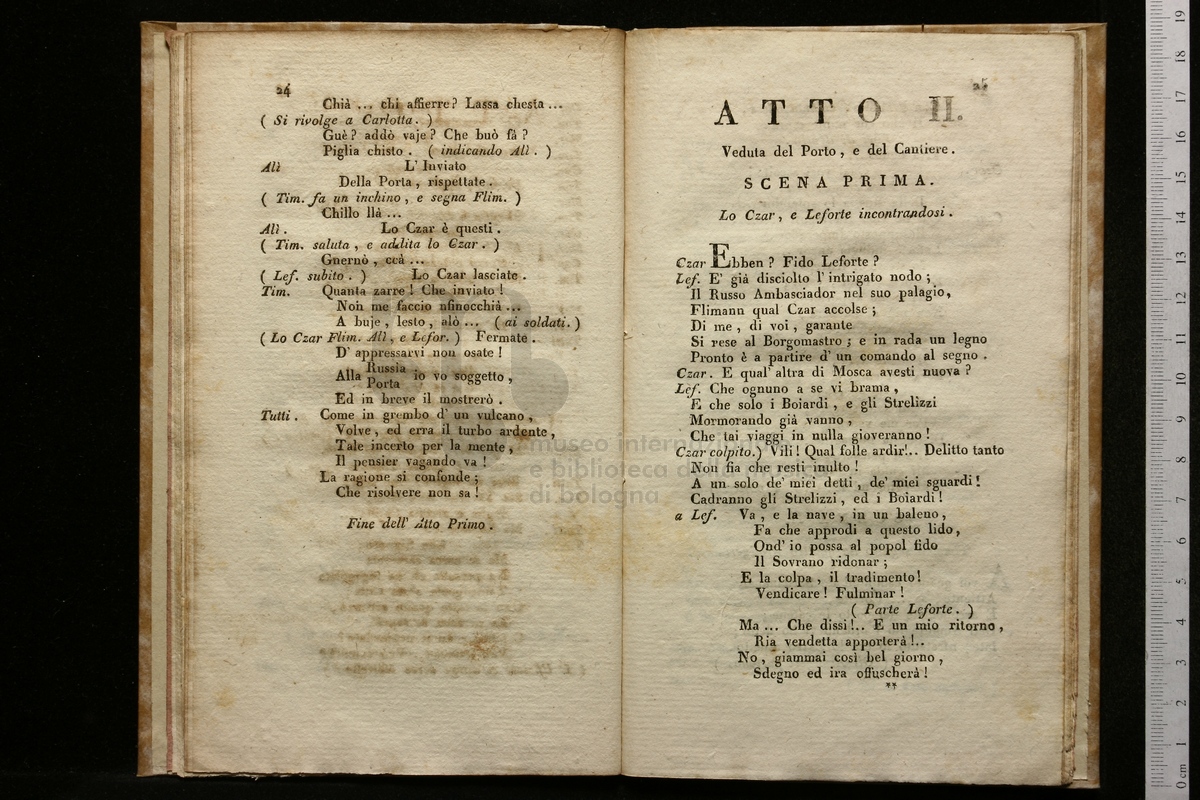 24
Chià ... chi affierre? Lassa chesta ...
( Si rivolge a Carlotta. )
Guè? addò vaje? Che buò fà?
Piglia chisto. ( indicando Alì. )
Alì L' Inviato
Della Porta, rispettate.
( Tim. fa un inchino, e segna Flim. )
Chillo llà ...
Alì. Lo Czar è questi.
( Tim. saluta, e addita lo Czar. )
Gnernò, ccà ...
( Lef. subito. ) Lo Czar lasciate.
Tim. Quanta zarre! Che inviato!
Non me faccio nfinocchià ...
A buje, lesto, alò ... ( ai soldati. )
( Lo Czar Flim. Alì, e Lefor. ) Fermate.
D' appressarvi non osate!
Alla Russia
Porta io vo soggetto,
Ed in breve il mostrerò.
Tutti. Come in grembo d' un vulcano,
Volve, ed erra il turbo ardente,
Tale incerto per la mente,
Il pensier vagando va!
La ragione si confonde;
Che risolvere non sa!
Fine dell' Atto Primo.
25
ATTO II.
Veduta del Porto, e del Cantiere.
SCENA PRIMA.
Lo Czar, e Leforte incontrandosi.
Czar Ebben? Fido Leforte?
Lef. E' già disciolto l' intrigato nodo;
Il Russo Ambasciador nel suo palagio,
Flimann qual Czar accolse;
Di me, di voi, garante
Si rese al Borgomastro; e in rada un legno
Pronto è a partire d' un comando al segno.
Czar. E qual' altra di Mosca avesti nuova?
Lef. Che ognuno a se vi brama,
E che solo i Boiardi, e gli Strelizzi
Mormorando già vanno,
Che tai viaggi in nulla gioveranno!
Czar colpito.) Vili! Qual folle ardir!.. Delitto tanto
Non fia che resti inulto!
A un solo de' miei detti, de' miei sguardi!
Cadranno gli Strelizzi, ed i Boiardi!
a Lef. Va, e la nave, in un baleno,
Fa che approdi a questo lido,
Ond' io possa al popol fido
Il Sovrano ridonar;
E la colpa, il tradimento!
Vendicare! Fulminar!
( Parte Leforte. )
Ma ... Che dissi!.. E un mio ritorno,
Ria vendetta apporterà!..
No, giammai così bel giorno,
Sdegno ed ira offuscherà!
**
museo internazionale
e biblioteca della musica
di bologna
0 cm 1 2 3 4 5 6 7 8 9 10 11 12 13 14 15 16 17 18 19